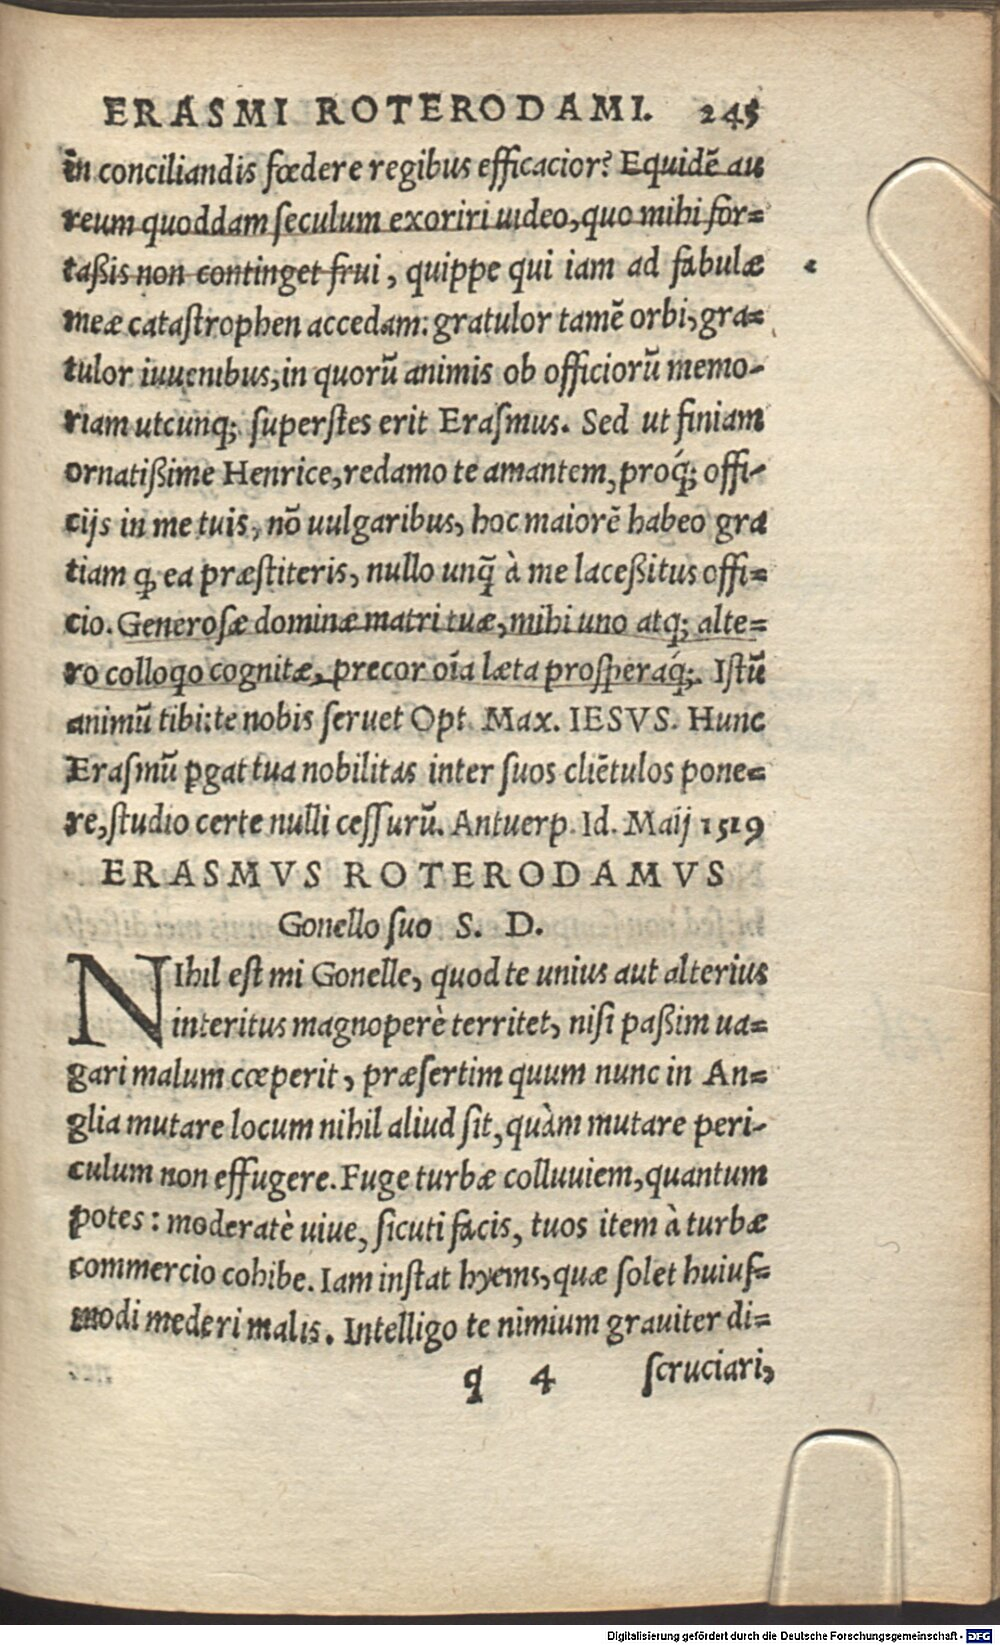 ERASMI ROTERODAMI. 245
in conciliandis fœdere regibus efficacior? Equidē au
reum quoddam ſeculum exoriri uideo, quo mihi for=
taßis non continget frui, quippe qui iam ad fabulæ
meæ cataſtrophen accedam: gratulor tamē orbi, gra=
tulor iuuenibus, in quorū animis ob officiorū memo-
riam utcunq; ſuperſtes erit Eraſmus. Sed ut finiam
ornatißime Henrice, redamo te amantem, proq́; offi-
cijs in me tuis, nō uulgaribus, hoc maiorē habeo gra
tiam ꝙ ea præſtiteris, nullo unq̃ à me laceßitus offi=
cio. Generoſæ dominæ matri tuæ, mihi uno atq; alte=
ro colloqo cognitæ, precor oīa læta proſperaq́;. Iſtū
animū tibi: te nobis ſeruet Opt. Max. IESVS. Hunc
Eraſmū ꝑgat tua nobilitas inter ſuos cliētulos pone=
re, ſtudio certe nulli ceſſurū. Antuerp. Id. Maij 1519
ERASMVS ROTERODAMVS
Gonello ſuo S. D.
NIhil eſt mi Gonelle, quod te unius aut alterius
interitus magnoperè territet, niſi paßim ua=
gari malum cœperit, præſertim quum nunc in An=
glia mutare locum nihil aliud ſit, quàm mutare peri-
culum non effugere. Fuge turbæ colluuiem, quantum
potes: moderatè uiue, ſicuti facis, tuos item à turbæ
commercio cohibe. Iam inſtat hyems, quæ ſolet huiuſ=
modi mederi malis. Intelligo te nimium grauiter di=
q 4 ſcruciari,
Digitalisierung gefördert durch die Deutsche Forschungsgemeinschaft - DFG